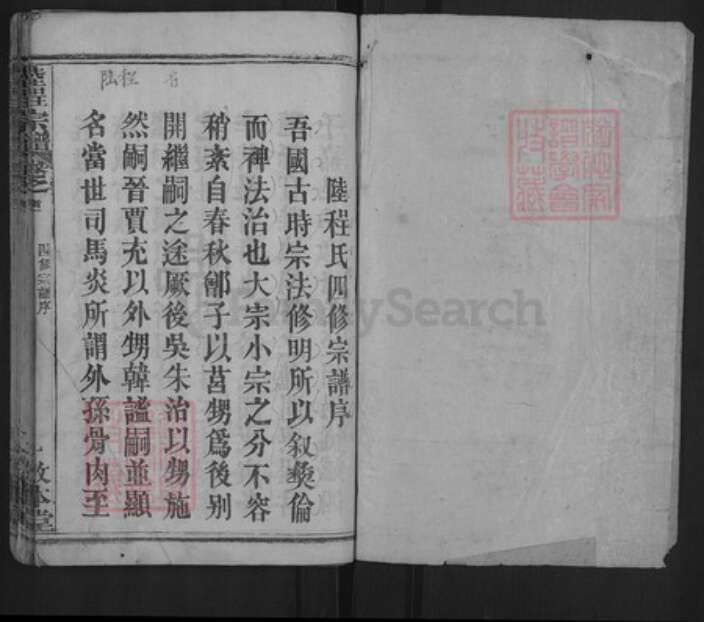 陸程氏四修宗譜序
吾國古時宗法修明所以敘彝倫
而裨法治也大宗小宗之分不容
稍紊自春秋鄫子以莒甥爲後别
開繼嗣之途厥後吳朱治以甥施
然嗣晉賈充以外甥韓謐嗣並顯
名當世司馬炎所謂外孫骨肉至
陸程
四修宗譜序
敦本堂
FamilySearch